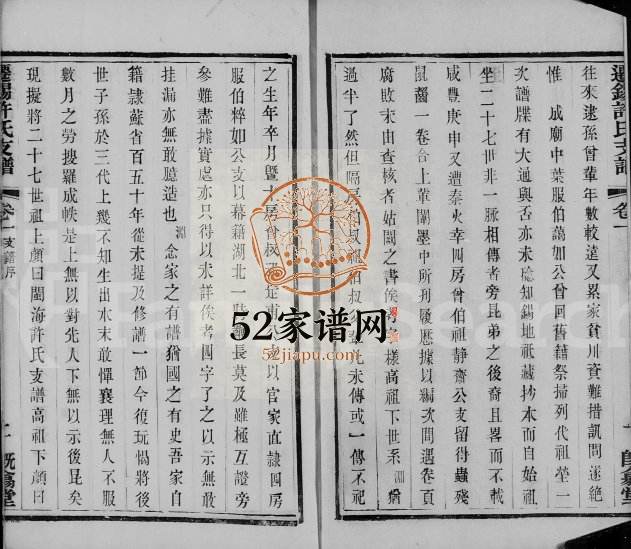 遷錫許氏支譜
卷一
往來逮孫曾輩年數較遠又累家貧川資難措訊問遂絕
惟 成廟中葉服伯蔼如公曾回舊籍祭掃列代祖塋一
次譜牒有大通與否亦未諗知錫地祗藏抄本而自始祖
坐二十七世非一脈相傳者旁昆弟之後裔且畧而不載
咸豐庚申又遭秦火幸四房曾伯祖靜齋公支留得蟲殘
鼠齧一卷合上輩闈墨中所刊履歷據以編次間遇卷頁
腐敗末由查核者姑闕之書俟 字樣高祖下世系 淵 猶
過半了然但隔房伯叔祖伯叔 未傳或一傳不祀
之生年卒月暨十房曾叔 以官家直隸四房
服伯粹如公支以幕籍湖北一 長莫及雖極互證旁
參難盡據實處亦只得以未詳俟考四字了之以示無敢
挂漏亦無敢臆造也 淵 念家之有譜猶國之有史吾家自
籍隸蘇省百五十年從未提及修譜一節今復玩愒將後
世子孫於三代上幾不知生出水末敢憚襄理無人不服
數月之勞搜羅成帙是上無以對先人下無以示後昆矣
現擬將二十七世祖上顏曰閩海許氏支譜高祖下顏曰
遷錫許氏支譜
卷一 支譜序
52家谱网
52jiapu.com